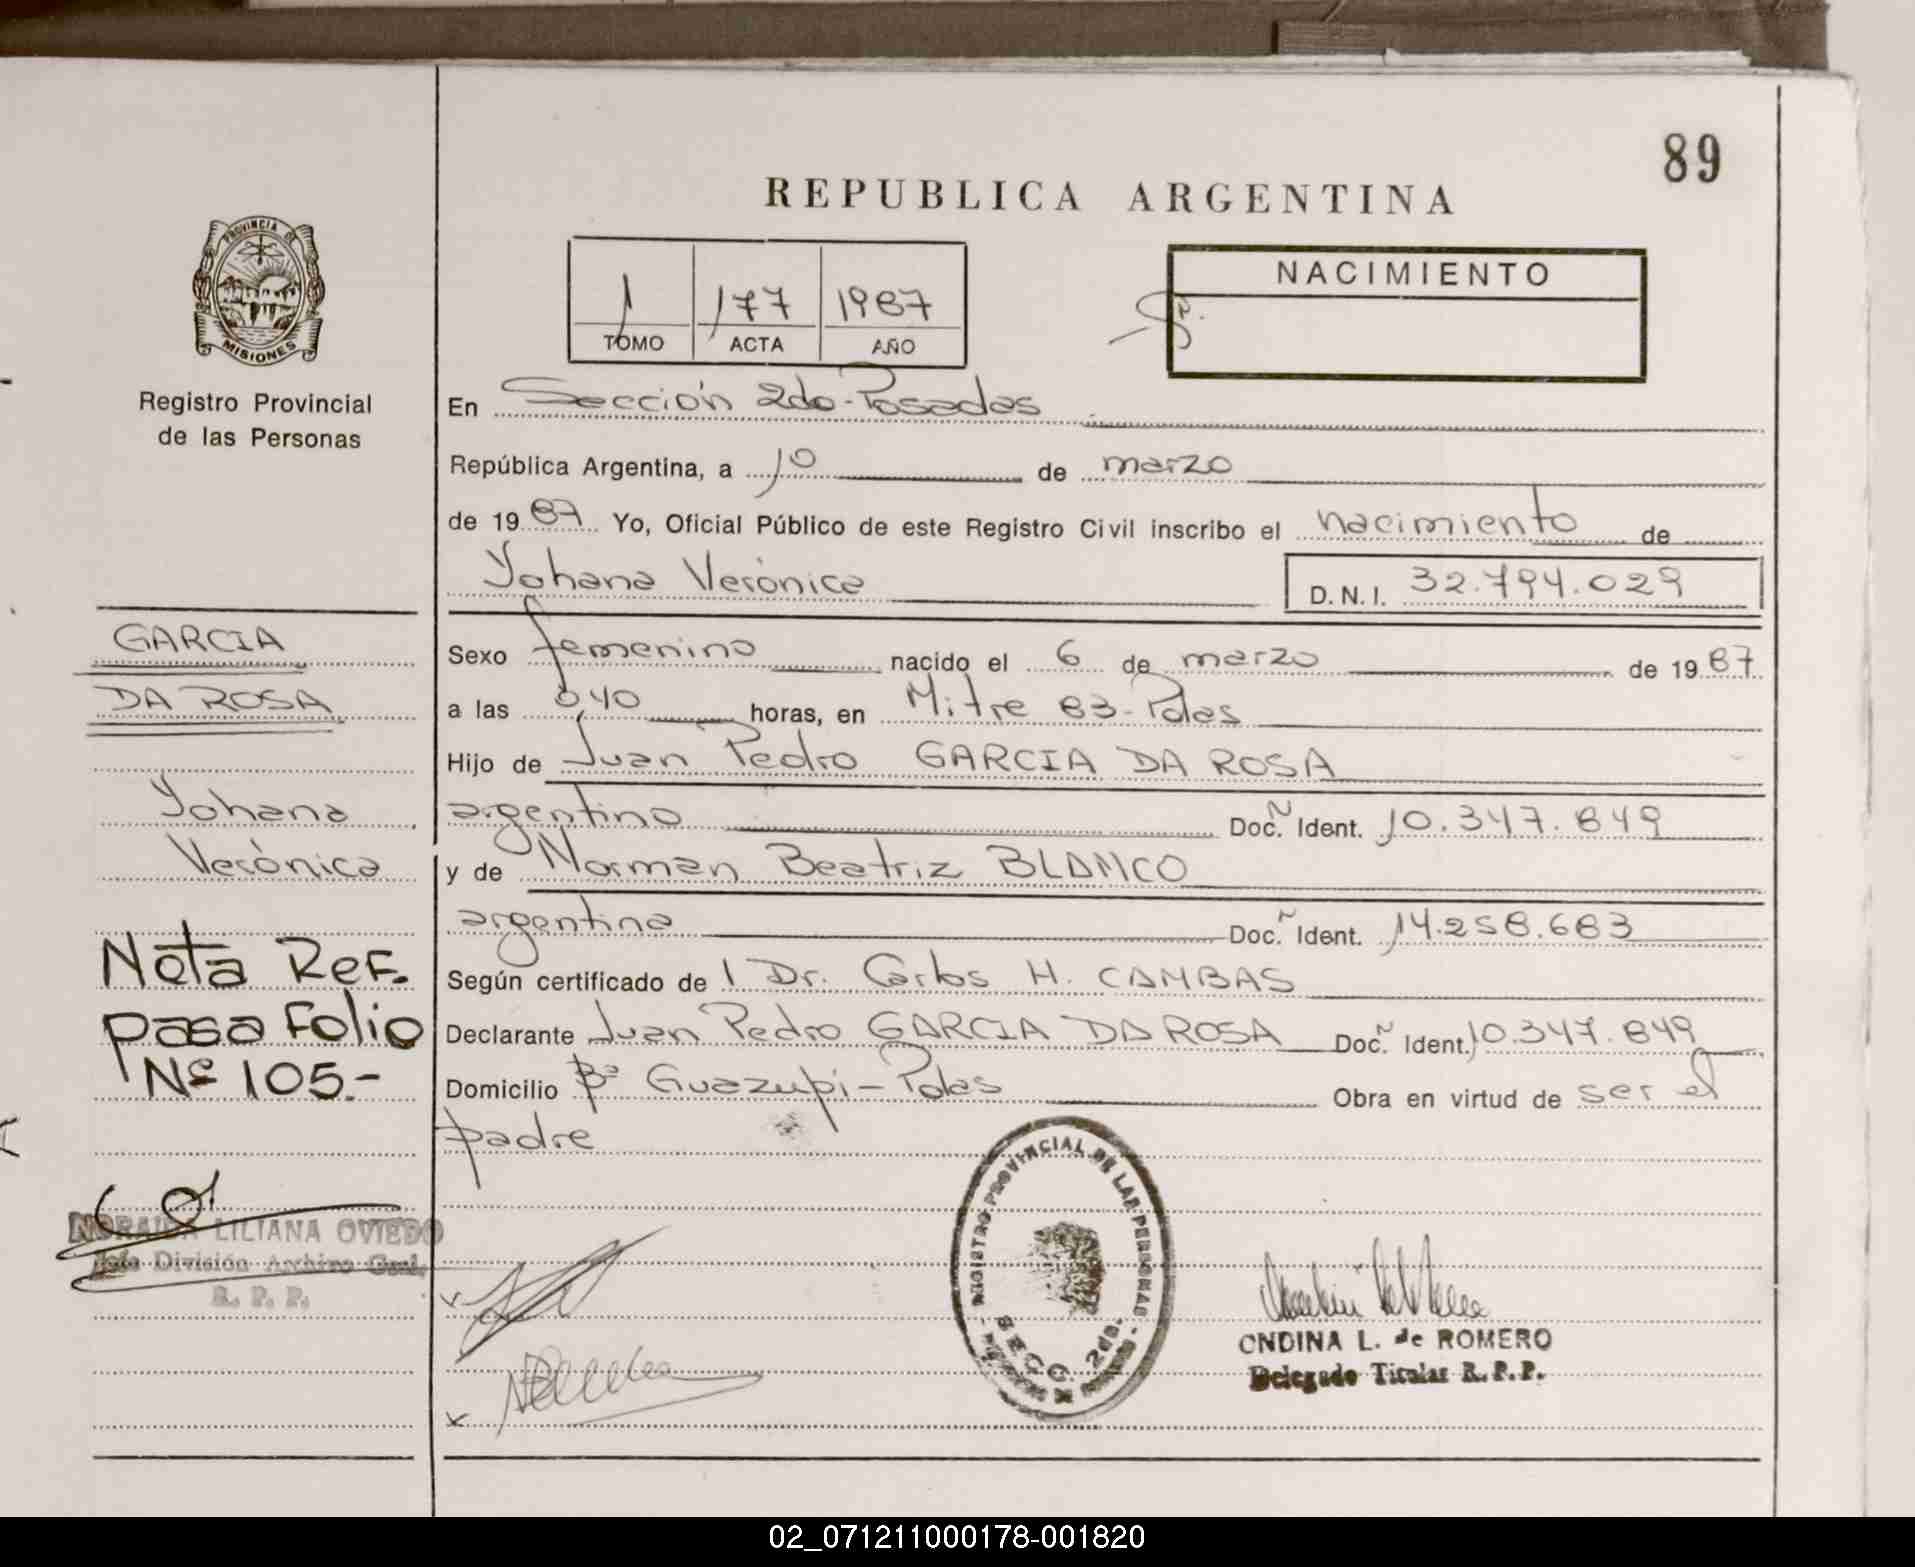 89
REPUBLICA ARGENTINA
PROVINCIA DE
MISIONES
Registro Provincial
de las Personas
1 177 1987
TOMO ACTA AÑO
NACIMIENTO
En Sección 2da-Posadas
República Argentina, a 10 de marzo
de 1987 Yo, Oficial Público de este Registro Civil inscribo el nacimiento de
Yohana Verónica D.N.I. 32.794.029
GARCIA
DA ROSA
Yohana
Verónica
Nota Ref.
pasa Folio
Nº 105-
NORAIDA LILIANA OVIEDO
Jefe División Archivo Gral.
R. P. P.
Sexo femenino nacido el 6 de marzo de 1987
a las 040 horas, en Mitre 83-Pdas
Hijo de Juan Pedro GARCIA DA ROSA
argentino Doc. Ident. 10.347.849
y de Norman Beatriz BLANCO
argentina Doc. Ident. 14.258.683
Según certificado de 1 Dr. Carlos H. CAMBAS
Declarante Juan Pedro GARCIA DA ROSA Doc. Ident. 10.347.849
Domicilio Bº Guazupi-Pdas Obra en virtud de ser el
padre
REGISTRO PROVINCIAL DE LAS PERSONAS
SECC. 2da.
ONDINA L. de ROMERO
Delegado Titular R.P.P.
02_071211000178-001820